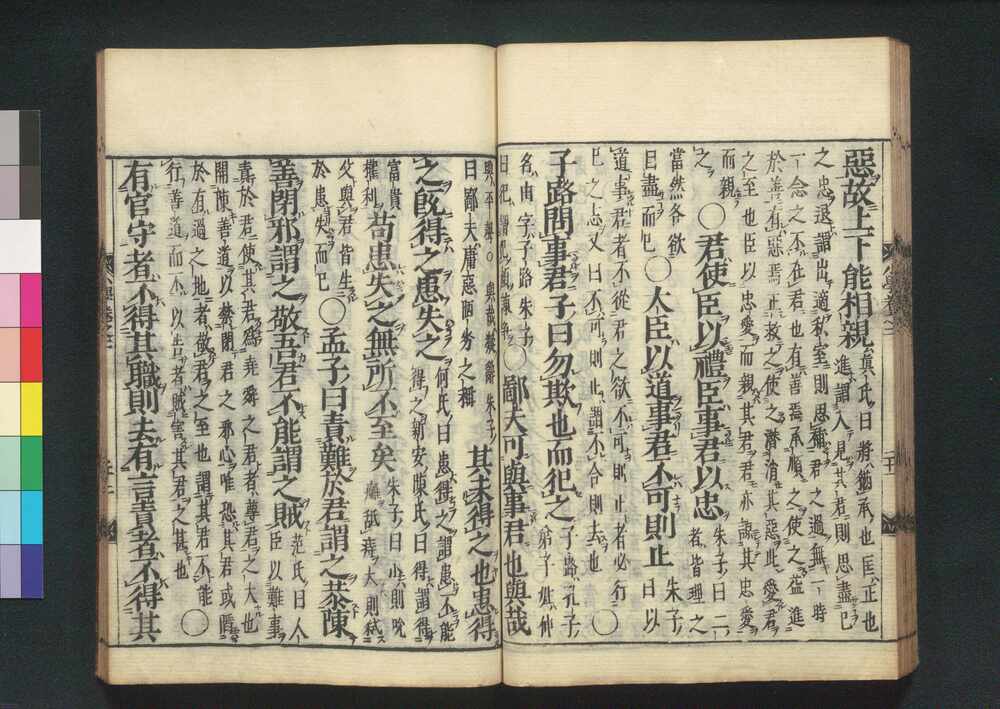 惡故上下能相親眞氏曰將猶承也匡正也
進謂入見其君則思盡己
之忠退謂出適私室則思補君之過無一時
一念之不在君也有善焉承順之使之益進
於善有惡焉正救之使之潜消其惡此愛君
之至也臣以忠愛而親其君君亦諒其忠愛
而親
之
〇君使臣以禮臣事君以忠朱子曰二
者皆理之
當然各欲
自盡而已
〇大臣以道事君不可則止朱子
曰以
道事君者不從君之欲不可則止者必行
己之志又曰不可則止謂不合則去也
〇
子路問事君子曰勿欺也而犯之子路孔子
弟子姓仲
名由字子路朱子
曰犯謂犯顔諫爭
〇鄙夫可與事君也與哉
與平聲〇與哉疑辭朱子
曰鄙夫庸惡陋劣之稱
其未得之也患得
之既得之患失之何氏曰患得之謂患不能
得之朝安陳氏曰得謂得
富貴
權利
苟患失之無所不至矣朱子曰小則吮
癰舐痔大則弑
父與君皆生
於患失而已
〇孟子曰責難於君謂之恭陳
善閉邪謂之敬吾君不能謂之賊范氏曰人
臣以難事
責於君使其君爲堯舜之君者尊君之大也
開陳善道以禁閉君之邪心唯恐其君或陷
於有過之地者敬君之至也謂其君不能
行善道而不以告者賊害其君之甚也
〇
有官守者不得其職則去有言責者不得其